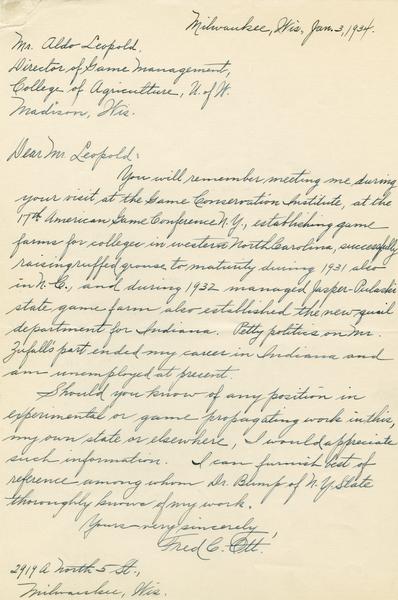 Milwaukee, Wis, Jan. 3, 1934.
Mr. Aldo Leopold.
Director of Game Management,
College of Agriculture, U. of W.
Madison, Wis.
Dear Mr Leopold:
You will remember meeting me during
your visit at the Game Conservation Institute, at the
17th American Game Conference N.Y., establishing game
farms for colleges in western North Carolina, successfully
raising ruffed grouse to maturity during 1931 also
in N.C., and during 1932 managed Jasper-Pulaski
state game farm also established the new quail
department for Indiana. Petty politics on Mr.
Zufall's part ended my career in Indiana and
am unemployed at present.
Should you know of any position in
experimental or game propagating work in this,
my own state or elsewhere, I would appreciate
such information. I can furnish best of
reference among whom Dr. Bump of N.Y. State
thoroughly knows of my work.
Yours very sincerely,
Fred C. Ott.
2919 A North 5 St.,
Milwaukee, Wis.